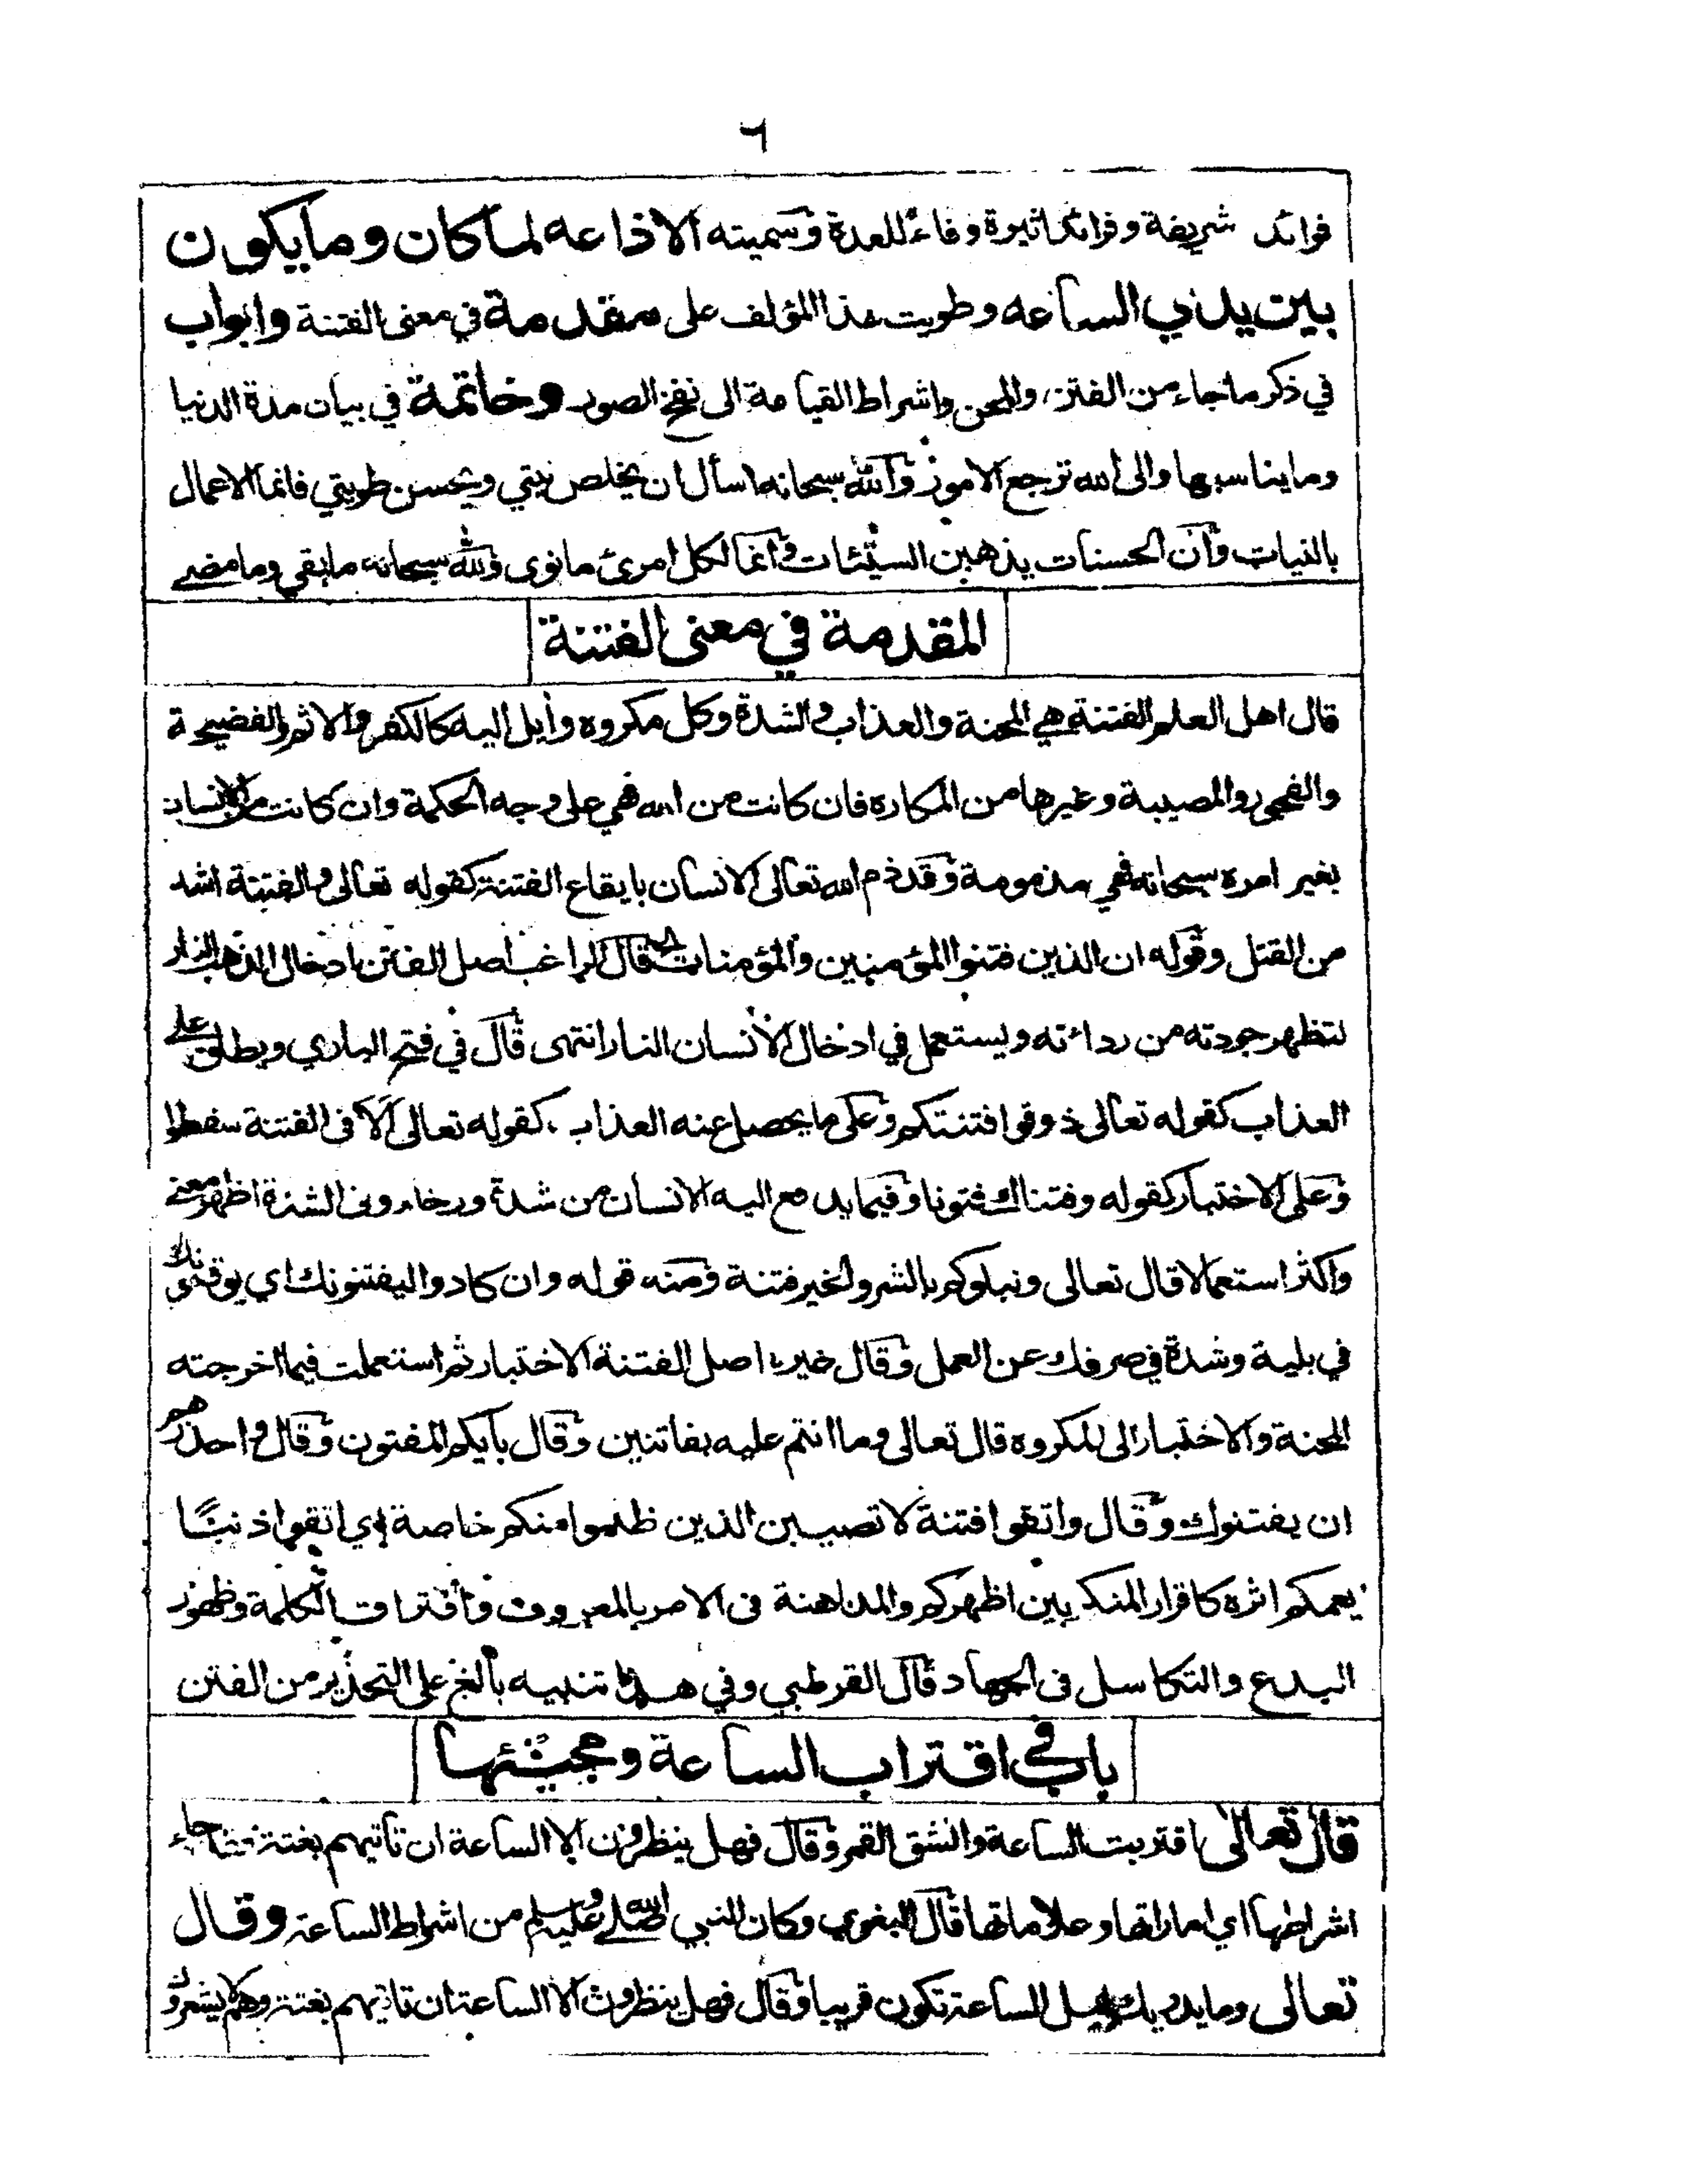 ٦
فوائد شريفة وفرائد اثيرة وفاء للعدة وسميته الاذاعه لما كان وما يكون
بين يدي الساعه وطويت هذا المؤلف على مقدمة في معنى الفتنة وابواب
في ذكر ما جاء من الفتن والمحن واشراط القيامة الى نفخ الصور وخاتمة في بيان مدة الدنيا
وما يناسبها والى الله ترجع الامور والله سبحانه اسأل ان يخلص نيتي ويحسن طويتي فانما الاعمال
بالنيات وان الحسنات يذهبن السيّئات وانما لكل امرئ ما نوى ولله سبحانه ما بقي وما مضے
المقدمة في معنى الفتنة
قال اهل العلم الفتنة هي المحنة والعذاب والشدة وكل مكروه وأيل اليه كالكفر والاثم والفضيحة
والفجور والمصيبة وغيرها من المكاره فان كانت من الله فهي على وجه الحكمة وان كانت من الانسان
بغير امره سبحانه فهي مذمومة وقد ذم الله تعالى الانسان بايقاع الفتنة كقوله تعالى والفتنة اشد
من القتل وقوله ان الذين فتنوا المؤمنين والمؤمنات قال الراغب اصل الفتن ادخال الذهب النار
لتظهر جودته من رداءته ويستعمل في ادخال الانسان النار انتهى قال في فتح الباري ويطلق على
العذاب كقوله تعالى ذوقوا فتنتكم وعلى ما يحصل عنه العذاب كقوله تعالى ألا فى الفتنة سقطوا
وعلى الاختبار كقوله وفتناك فتونا وفيما يدفع اليه الانسان من شدة ورخاء وفى الشدة اظهر معنے
واكثر استعمالا قال تعالى ونبلوكم بالشر والخير فتنة ومنه قوله وان كادوا ليفتنونك اي يوقعونك
في بلية وشدة في صرفك عن العمل وقال غيره اصل الفتنة الاختبار ثم استعملت فيما اخرجته
المحنة والاختبار الى المكروه قال تعالى وما انتم عليه بفاتنين وقال بأيكم المفتون وقال واحذرهم
ان يفتنوك وقال واتقوا فتنة لا تصيبن الذين ظلموا منكم خاصة اي اتقوا ذنبًا
يعمكم اثره كاقرار المنكر بين اظهركم والمداهنة فى الامر بالمعروف وافتراق الكلمة وظهور
البدع والتكاسل فى الجهاد قال القرطبي وفي هذا تنبيه بالغ على التحذير من الفتن
باب في اقتراب الساعة ومجيئها
قال تعالى اقتربت الساعة وانشق القمر وقال فهل ينظرون الا الساعة ان تاتيهم بغتة فقد جاء
اشراطها اي اماراتها وعلاماتها قال البغوي وكان النبي صلى الله عليه وسلم من اشراط الساعة وقال
تعالى وما يدريك لعل الساعة تكون قريبا وقال فهل ينظرون الا الساعة ان تاتيهم بغتة وهم لا يشعرون